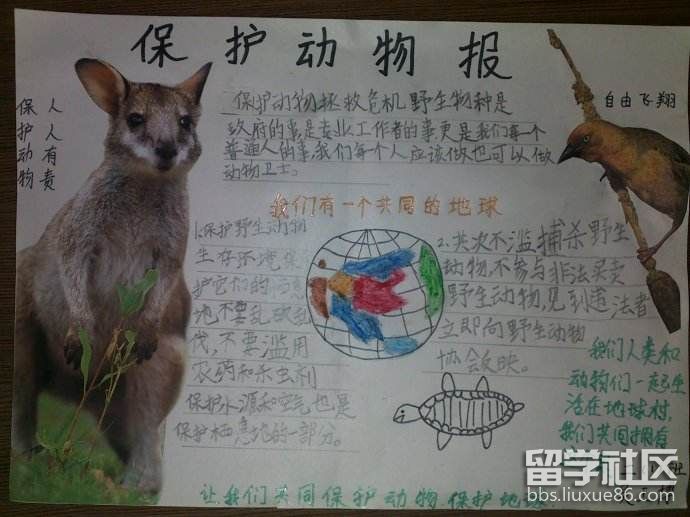 保护动物报
保护动物
人人有责
保护动物拯救危机野生物种是
政府的事,是专业工作者的事更是我们每一个
普通人的事,我们每个人应该做也可以做
动物卫士。
自由飞翔
我们有一个共同的地球
1.保护野生动物
生存环境
护它们的
地不要乱砍乱
伐,不要滥用
农药和杀虫剂
保护水源和空气也是
保护栖息地的一部分。
2.其次不滥捕杀野生
动物,不参与非法买卖
野生动物,见到违法者
立即向野生动物
协会反映。
我们人类和
动物们一起生
活在地球村
我们共同拥有
让我们共同保护动物保护地球
留学社区
bbs.liuxue86.com